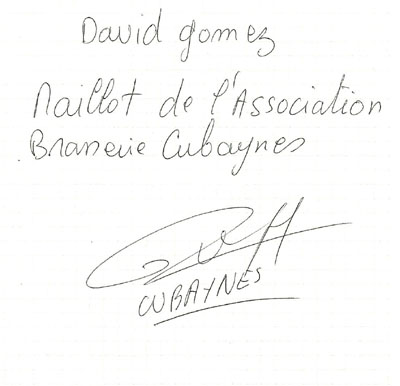 David gomez
Maillot de l'Association
Brasserie Cubaynes
CUBAYNES